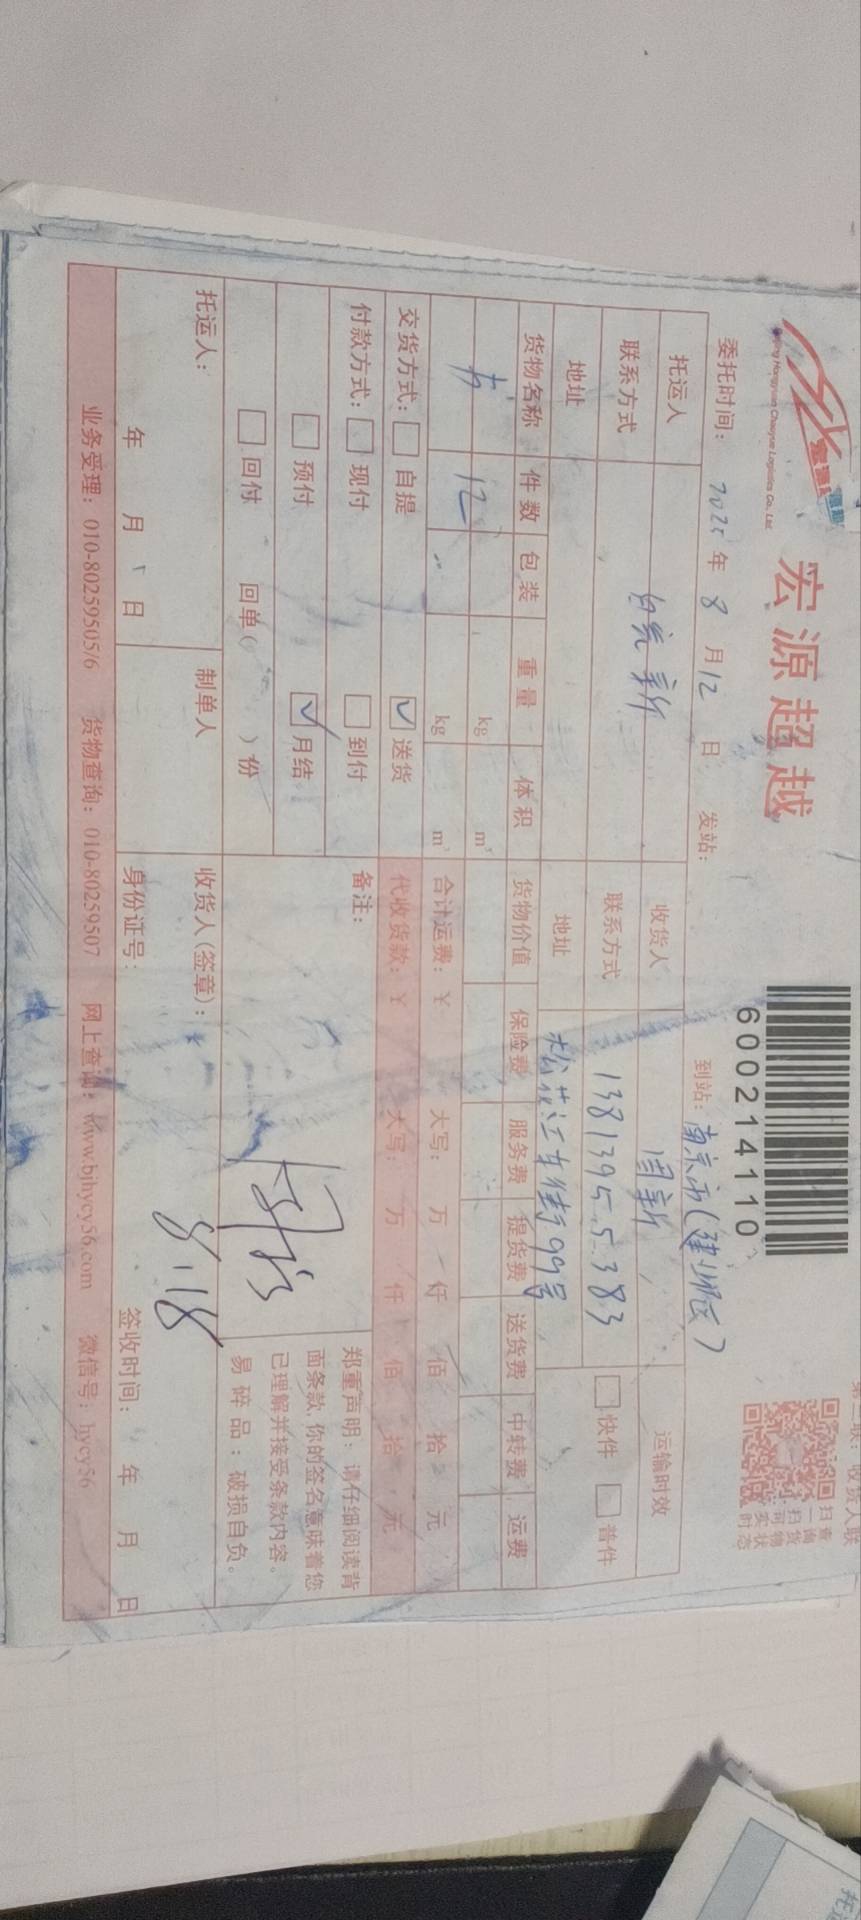 宏源超越
Beijing Hongyuan Chaoyue Logistics Co., Ltd.
600214110
第三联：收货人联
扫一扫 可实时
查询货物状态
委托时间： 2025 年 8 月 12 日 发站： 到站：南京市(建邺区)
托运人 收货人 闫新 运输时效
联系方式 联系方式 13813955383 快件 普件
地址 地址 松花江东街99号
货物名称 件数 包装 重量 体积 货物价值 保险费 服务费 提货费 送货费 中转费 运费
书 12 kg m³
kg m³ 合计运费：￥ 大写： 万 仟 佰 拾 元
交货方式： 自提 ✓ 送货 代收货款：￥ 大写： 万 仟 佰 拾 元
付款方式： 现付 到付 备注：
预付 ✓ 月结
回付 回单( ) 份
郑重声明：请仔细阅读背
面条款,你的签名意味着您
已理解并接受条款内容。
易碎品：破损自负。
托运人： 制单人 收货人(签章)：
8.18
年 月 日 身份证号： 签收时间： 年 月 日
业务受理：010-80259505/6 货物查询：010-80259507 网上查询：www.bjhycy56.com 微信号：hycy56